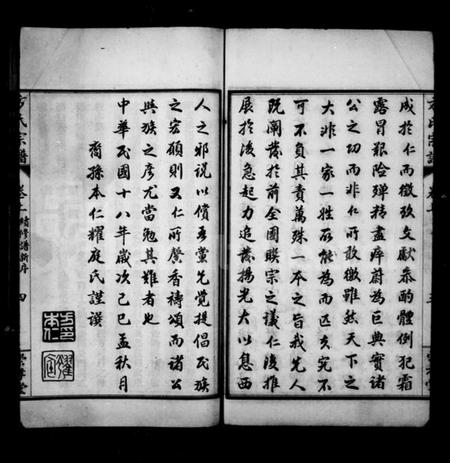 成於仁而徵攷文獻參酌體例犯霜
露冒艱險殫精盡瘁蔚為巨典實諸
公之功而非仁所敢徵雖然天下之
大非一家一姓所能為而匹夫究不
可不負其責萬殊一本之旨我先人
既闡發於前全國睽宗之議仁後推
展於後急起力追發揚光大以息西
人之邪說以償吾黨先覺提倡民族
之宏願則又仁所馨香禱頌而諸公
與族之彥尤當勉其難者也
中華民國十八年歲次己巳孟秋月
裔孫本仁耀庭氏謹譔
方氏宗譜
卷之一 續修譜新序
四